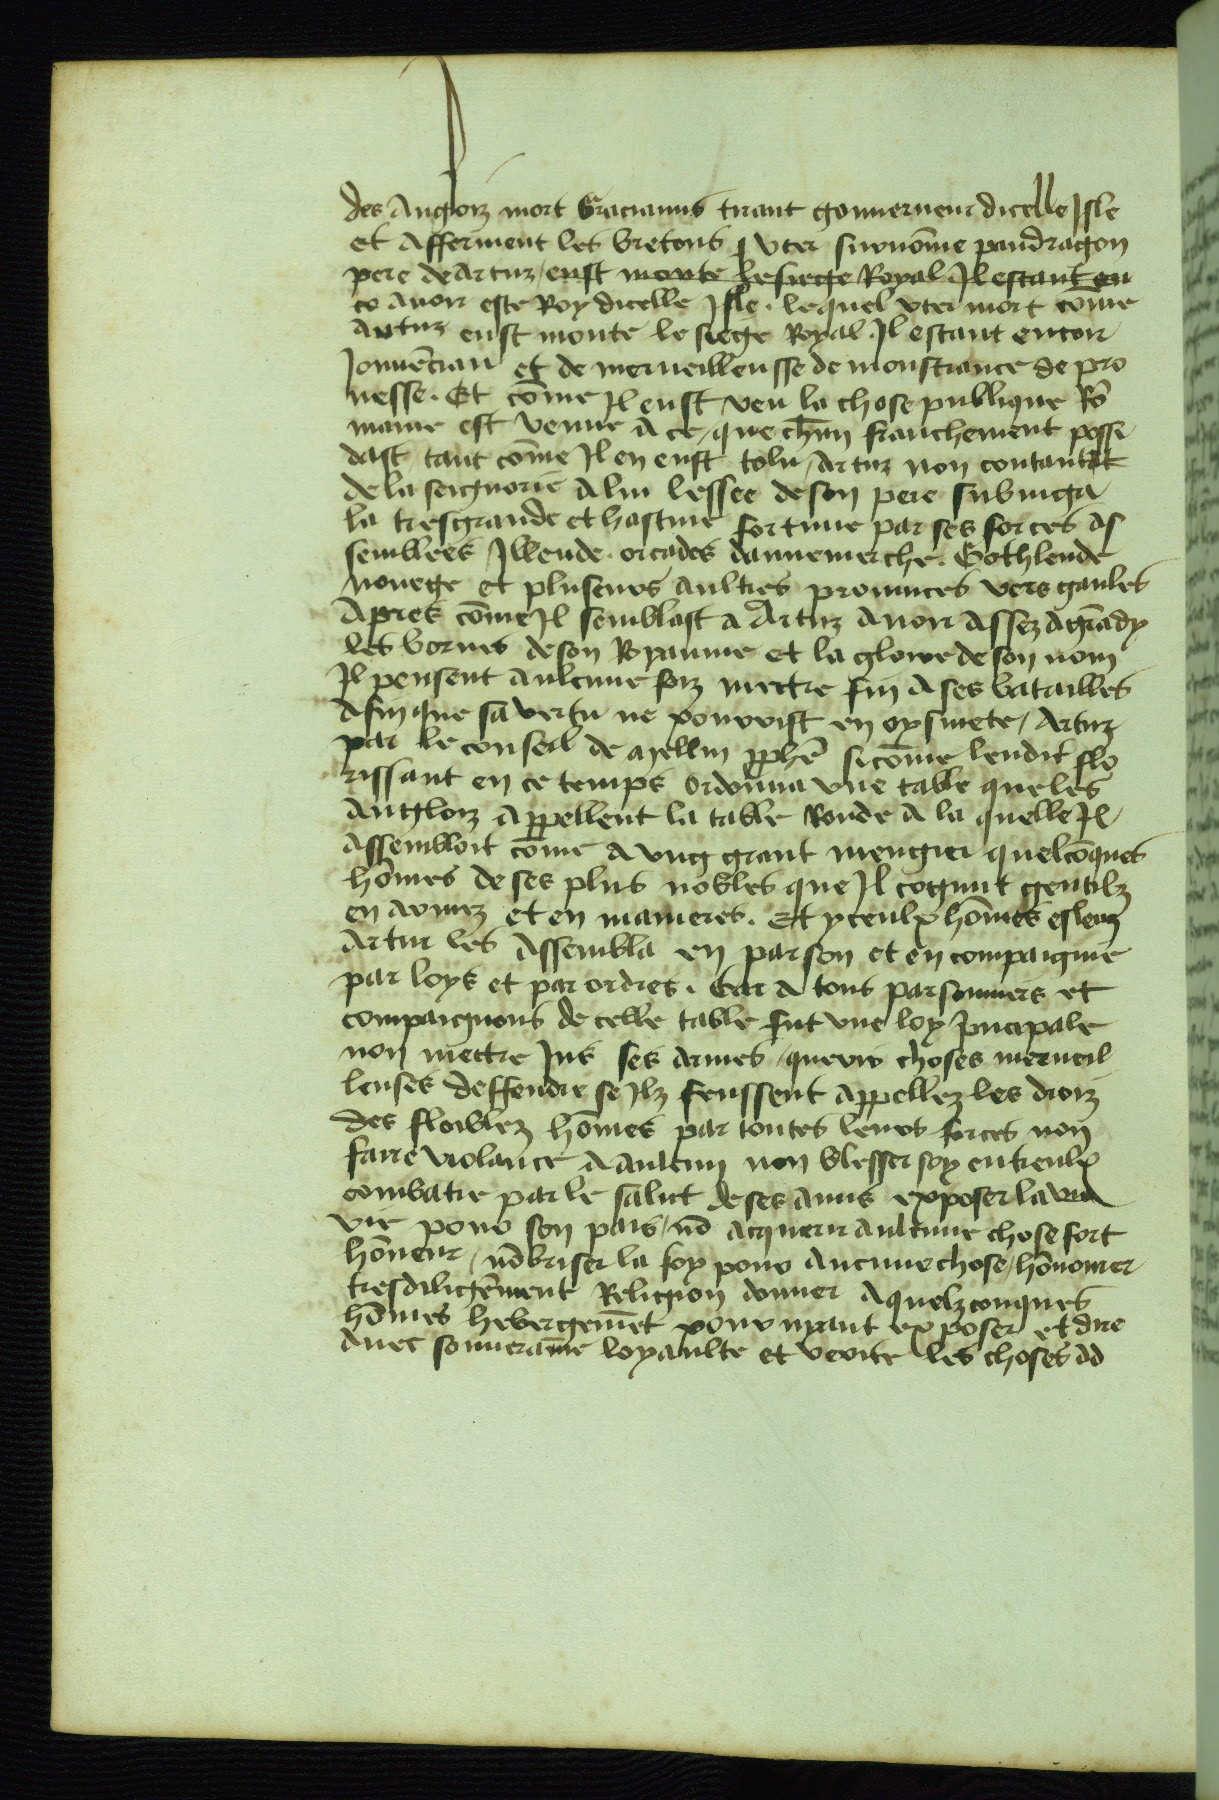 des Angloiz mort Gracianus tirant gouverneur dicelle Isle
et Afferment les bretons q Uter surnõme pandragon
pere de Artuz / eust monte le siege Royal Il estant en
co avoir este Roy dicelle Isle . lequel uter mort cõme
Artuz eust monte le siege Royal . Il estant encor
Jouuẽcian et de merueilleusse demonstrance de pro
uesse . Et cõme Il eust veu la chose publique Rõ
maine est venue A ce / que chũn franchement posse
dast tant cõme Il en eust tolu / Artuz non contant
de la seignorie A lui lessee de son pere subiuga
la tresgrande et hastiue fortune par ses forces As
semblees Illende . orcades dannemerche . Gothlende
Nouege et pluseurs aultres prouinces vers gaules
Apres cõme Il semblast a Artuz Avoir Assez Agrãdy
les bornes de son Royaume et la gloire de son nom
Il pensent Aulcune foiz mectre fin A ses batailles
Afin que sa vertu ne pourrist en oysiuete / Artuz
par le conseil de Merlin pphẽ sicõme lendit flo
rissant en ce temps ordonna vne table que les
Angloiz Appellent la table Ronde A la quelle Il
Assembloit cõme A vng grant mengier quelcõques
hõmes de ses plus nobles que Il cognut gentilz
en Armez et en manieres . Et yceulx hõmes esleuz
Artur les Assembla en parson et en compaignie
par loys et par ordres . Car A tous parsonniers et
compaignons de celle table fut vne loy pncipale
non mectre Jus ses Armes / querir choses merueil
leuses deffendre se Ilz feussent Appellez les droiz
des floiblez hõmes par toutes leurs forces non
faire violance A aulcun non blesser soy entreulx
combatre par le salut de ses amis exposer la
vie pour son pais / nõ Acquerir aulcune chose fort
hõneur / nõ briser la foy pour Aucune chose / hõnourer
tresdiligẽment Religion donner A quelzconques
hõmes hebergemẽt pour nyant exposer et dire
Avec souueraine loyaulte et verite les choses Ad